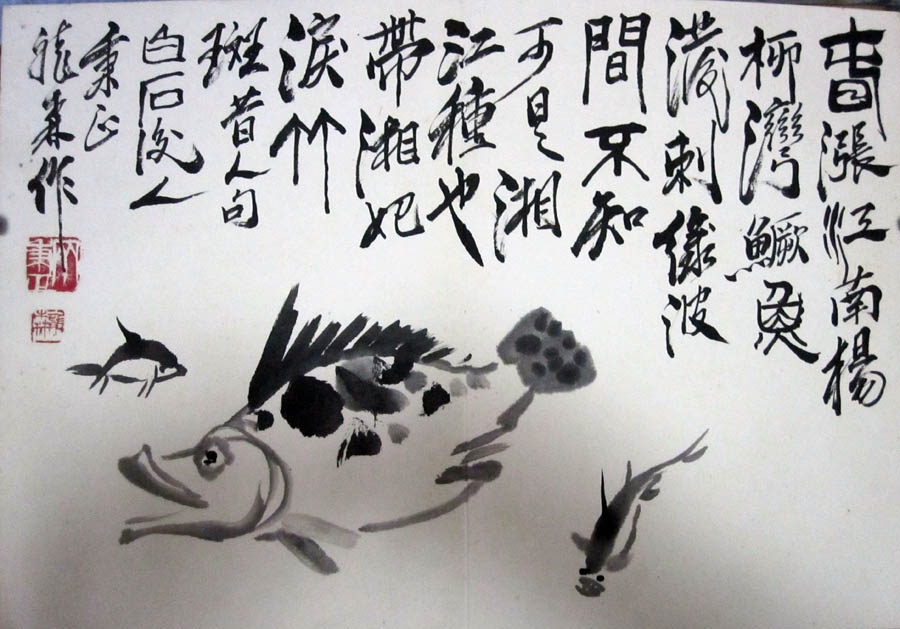 春漲江南楊
柳灣鱖魚
潑刺綠波
間不知
可是湘
江種也
帶湘妃
淚竹
斑昔人句
白石後人
秉正
作